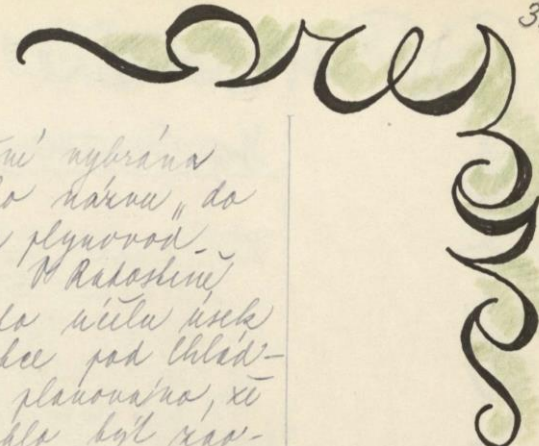 3
ně vybrána
ho názvu „do
plynovod.
V Radostině
to účelu úsek
bce pod Chlád-
plánováno, že
hlo být zao-